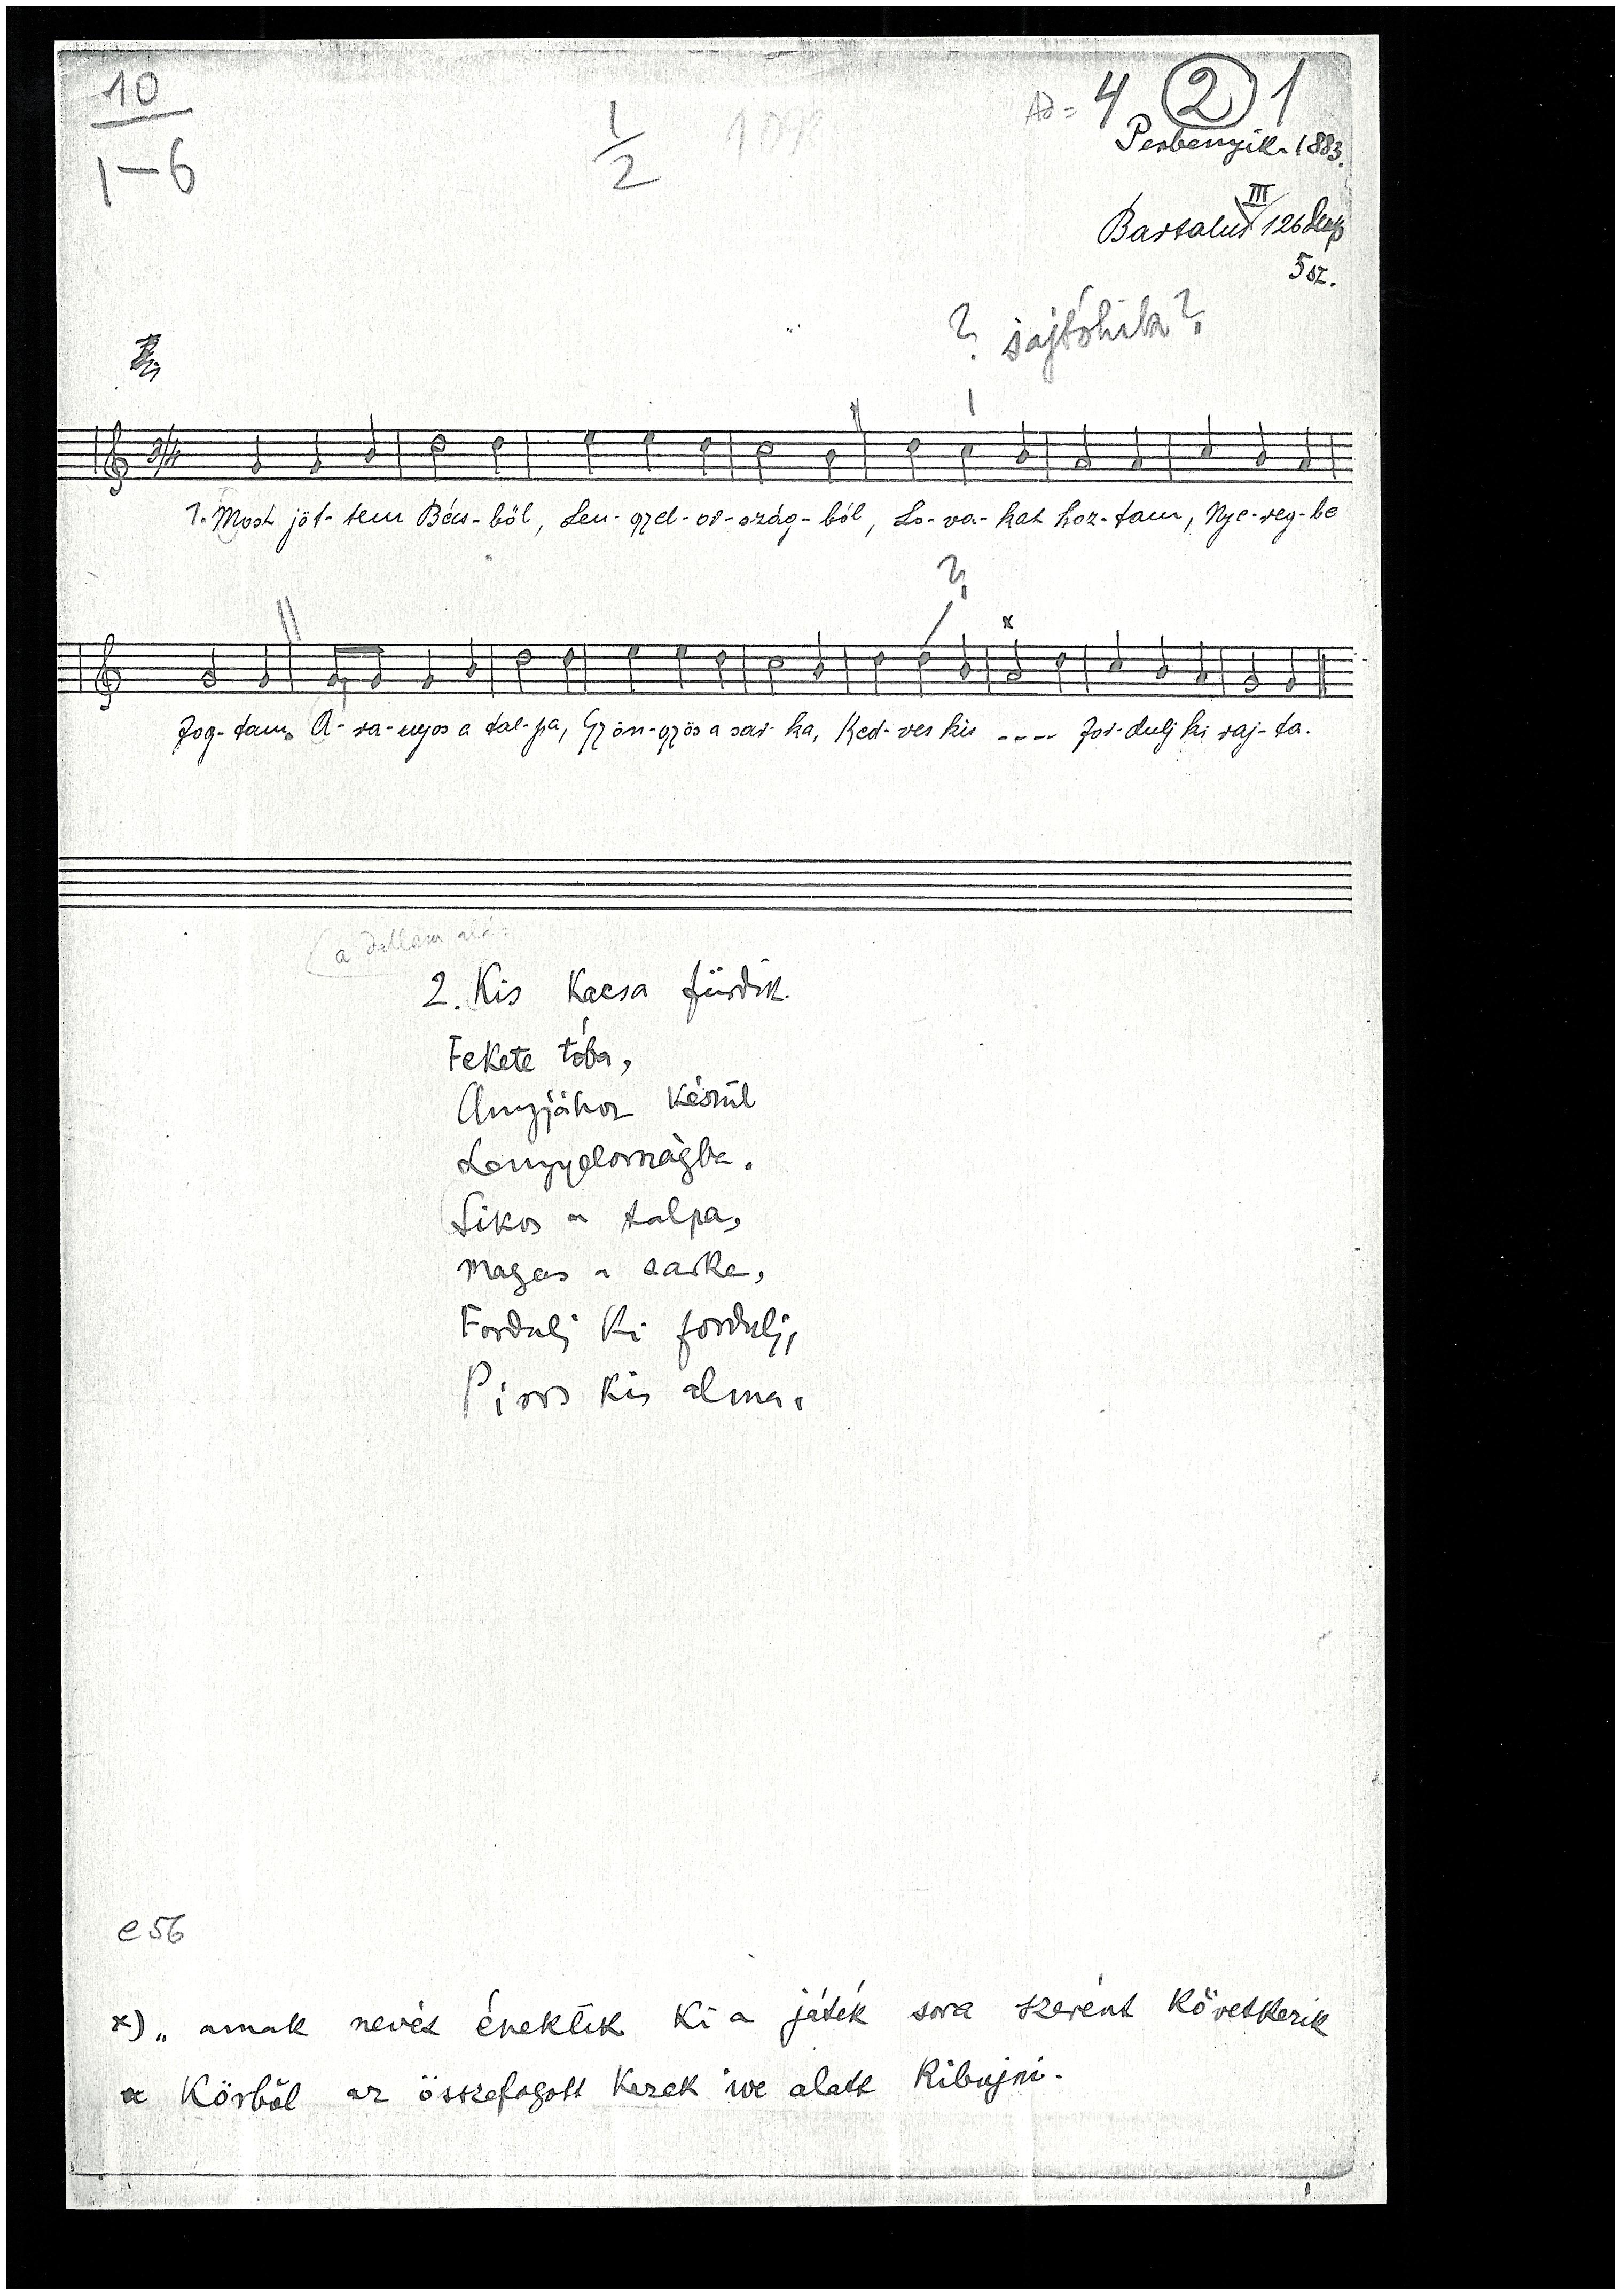 10
1-6
1/2
109
Ad = 4 2 1
Perbenyik. 1883.
Bartalus III/126 lap
5 sz.
? sajtóhiba?
3/4
1. Most jöt-tem Bécs-ből, Len-gyel-or-szág-ból, Lo-va-kat hoz-tam, Nye-reg-be
?
x
fog-tam. A-ra-nyos a tal-pa, Gyön-gyös a sar-ka, Ked-ves kis ---- for-dulj ki raj-ta.
(a dallam alá:
2. Kis kacsa fürdik
Fekete tóba,
Anyjához készül
Lengyelországba.
Sikos a talpa,
Magas a sarka,
Fordulj ki fordulj,
Piros kis alma.
e 56
x) „annak nevét éneklik ki a játék sora szerént következik
a körből az összefogott kezek íve alatt kibujni.